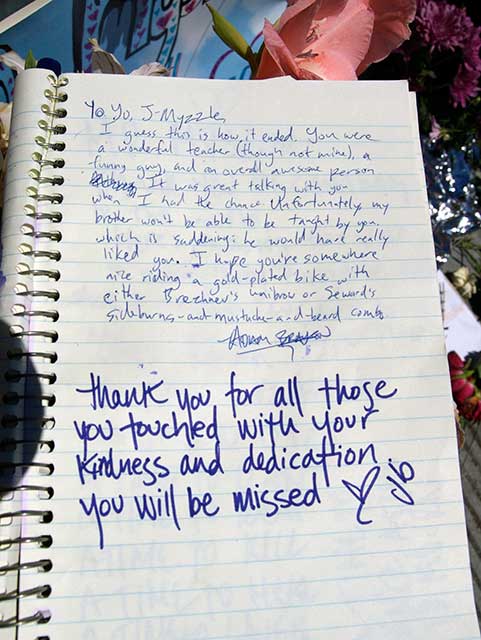 Yo Yo, J-Myzzle,
I guess this is how it ended. You were
a wonderful teacher (though not mine), a
funny guy, and an overall awesome person
It was great talking with you
when I had the chance. Unfortunately my
brother won't be able to be taught by you,
which is suddening; he would have really
liked you. I hope you're somewhere
nice riding a gold-plated bike with
either Brezhnev's unibrow or Seward's
sideburns-and-mustache-and-beard combo
Adam
thank you for all those
you touched with your
kindness and dedication
you will be missed ♡ Jb